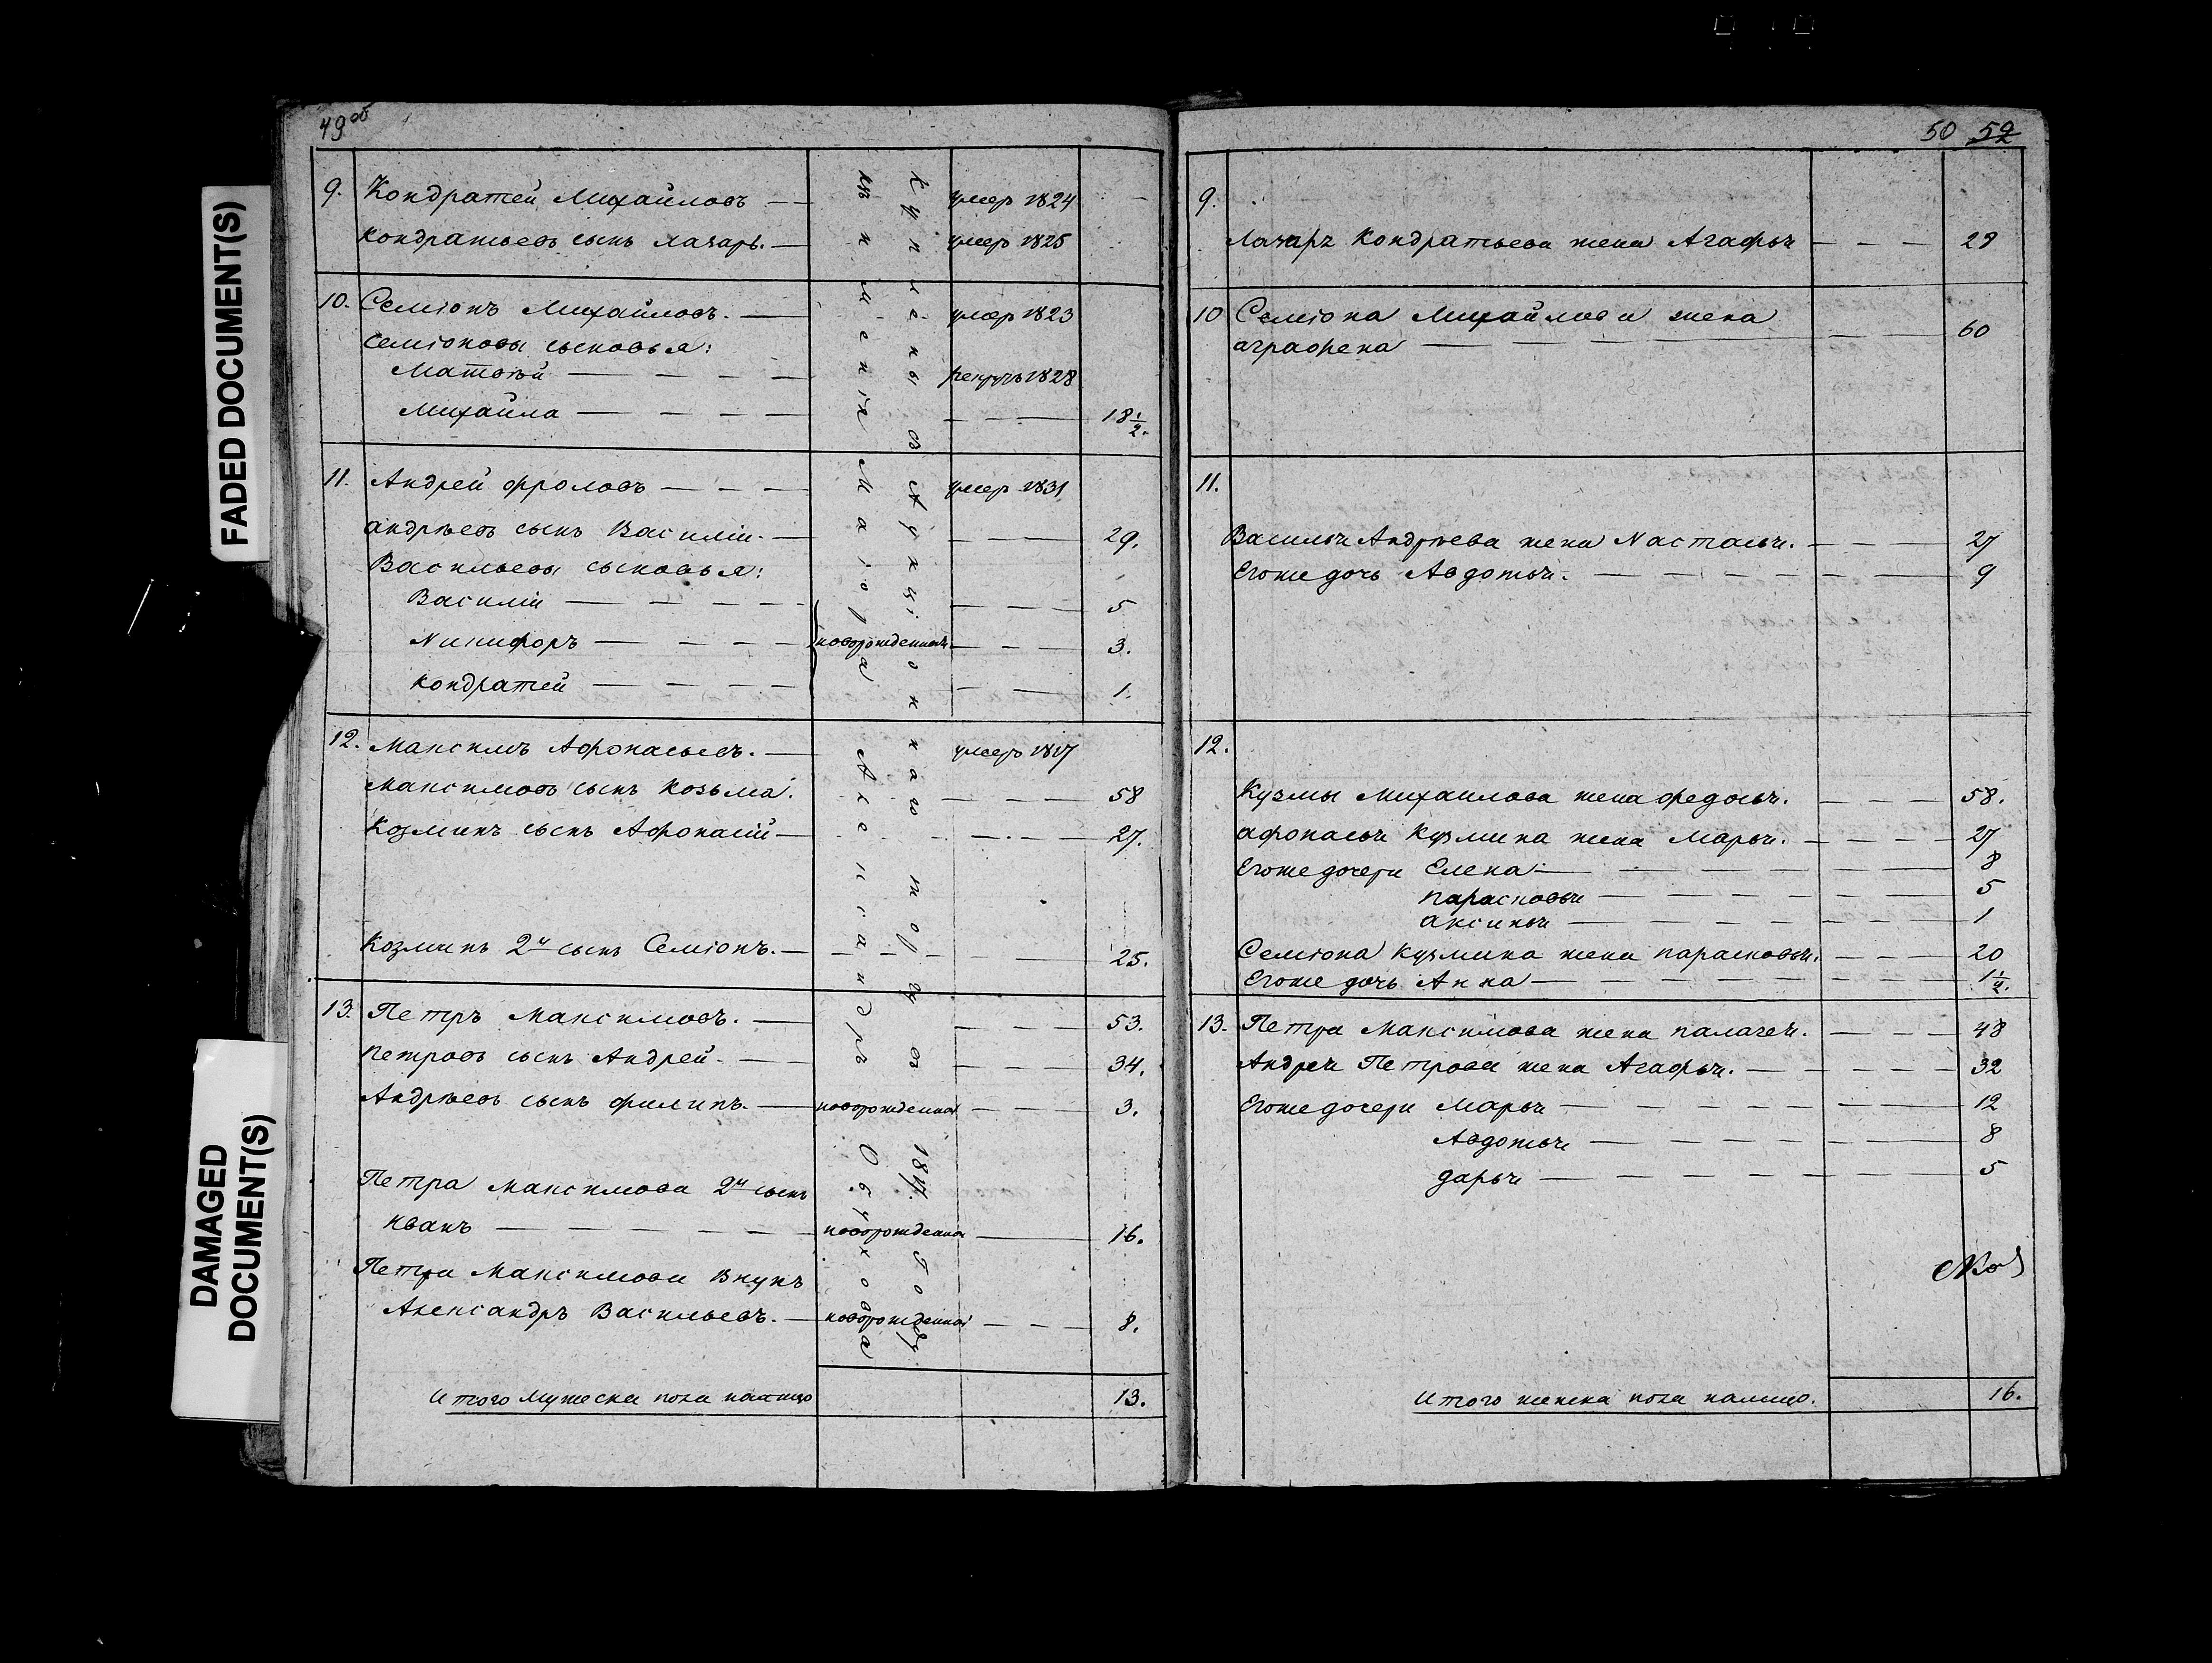 49об
9. Кондратей Михайловъ — умеръ 1824
Кондратьевъ сынъ Лазарь. — умеръ 1825
10. Семіонъ Михайловъ. — умеръ 1823
Семіоновы сыновья:
Матвѣй — рекрутъ 1828
Михайла — 18 1/2.
11. Андрей Фроловъ — умеръ 1831
Андрѣевъ сынъ Василій. — 29.
Васильевы сыновья:
Василій — 5
Никифоръ — новорожденные — 3.
Кондратей — 1.
12. Максимъ Афонасьевъ. — умеръ 1817
Максимовъ сынъ Козьма. — 58
Козминъ сынъ Афонасій — 27.
Козминъ 2й сынъ Семіонъ. — 25.
13. Петръ Максимовъ. — 53.
Петровъ сынъ Андрей. — 34.
Андрѣевъ сынъ Филипъ. — новорожденной — 3.
Петра Максимова 2й сынъ
Иванъ — новорожденной — 16.
Петра Максимова внукъ
Александръ Васильевъ. — новорожденной — 8.
Итого мужеска пола налицо 13.
Куплены въ Аукціонкаго торгу въ 1817. Году
къ имения Маіора Александръ Обухова
50 52
9.
Лазаря Кондратьева жена Агафья — 29
10 Семіона Михайлова жена
Аграфена — 60
11.
Василья Андрѣева жена Настасья. — 27
Егоже дочь Авдотья. — 9
12.
Кузмы Михаилова жена Федосья. — 58.
Афонасья Кузмина жена Марья. — 27
Егоже дочери Елена — 8
Парасковья — 5
Аксинья — 1
Семіона Кузмина жена Парасковья. — 20
Егоже дочь Анна — 1 1/2.
13. Петра Максимова жена Палагея. — 48
Андрея Петрова жена Агафья. — 32
Егоже дочери Марья — 12
Авдотья — 8
Дарья — 5
Итого женска пола налицо. 16.
FADED DOCUMENT(S)
DAMAGED
DOCUMENT(S)